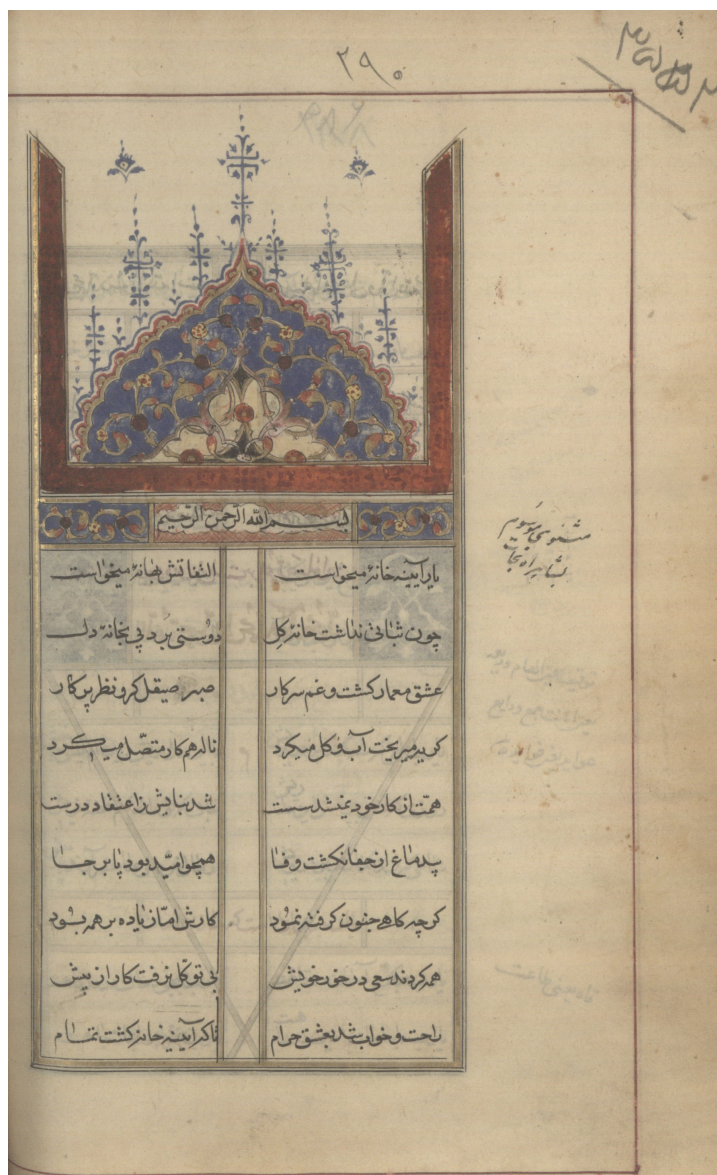 ۲۹۰
بسم الله الرحمن الرحيم
مثنوی موسوم
بشاهراه نجات
یار آیینه خانهٔ میخواست التفاتش بهانهٔ میخواست
چون ثباتی نداشت خانهٔ کل دوستی برد پی بخانهٔ دل
عشق معمار کشت و غم سرکار صبر صیقل کر و نظر پرکار
کریه میریخت آب و کل میکرد ناله هم کار متصل میکرد
همت از کار خود نمیشد سست شد بنایش ز اعتقاد درست
بیدماغ از جفا نکشت وفا همچو امید بود پا بر جا
کرچه کاهی جنون کرفته نمود کارش اما زیاده بر همه بود
همه کردند سعی در خور خویش بی توکل نرفت کار از پیش
راحت و خواب شد بعشق حرام تا که آیینه خانه کشت تمام